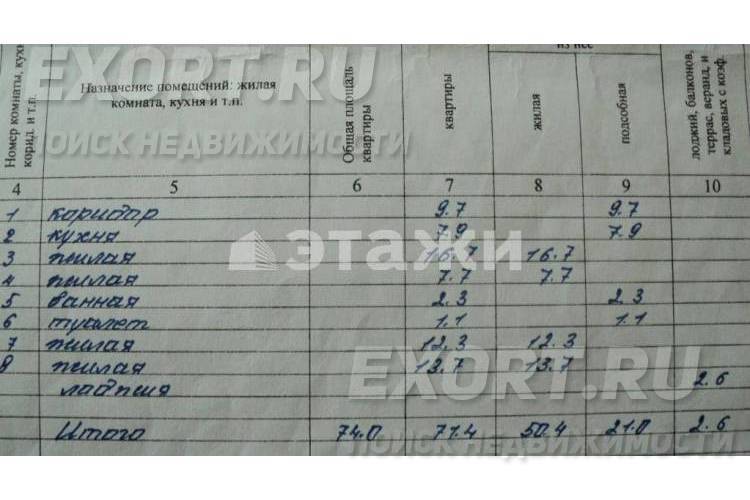 EXORT.RU
ПОИСК НЕДВИЖИМОСТИ
из нее
Номер комнаты, кухн
корид. и т.п.
Назначение помещений: жилая
комната, кухня и т.п.
Общая площаль
квартиры
квартиры
жилая
подсобная
лоджий, балконов,
террас, веранд, и
кладовых с коэф.
4 5 6 7 8 9 10
1 коридор 9.7 9.7
2 кухня 7.9 7.9
3 жилая 16.7 16.7
4 жилая 7.7 7.7
5 ванная 2.3 2.3
6 туалет 1.1 1.1
7 жилая 12.3 12.3
8 жилая 13.7 13.7
лоджия 2.6
Итого 74.0 71.4 50.4 21.0 2.6
этажи
EXORT.RU
ПОИСК НЕДВИЖИМОСТИ